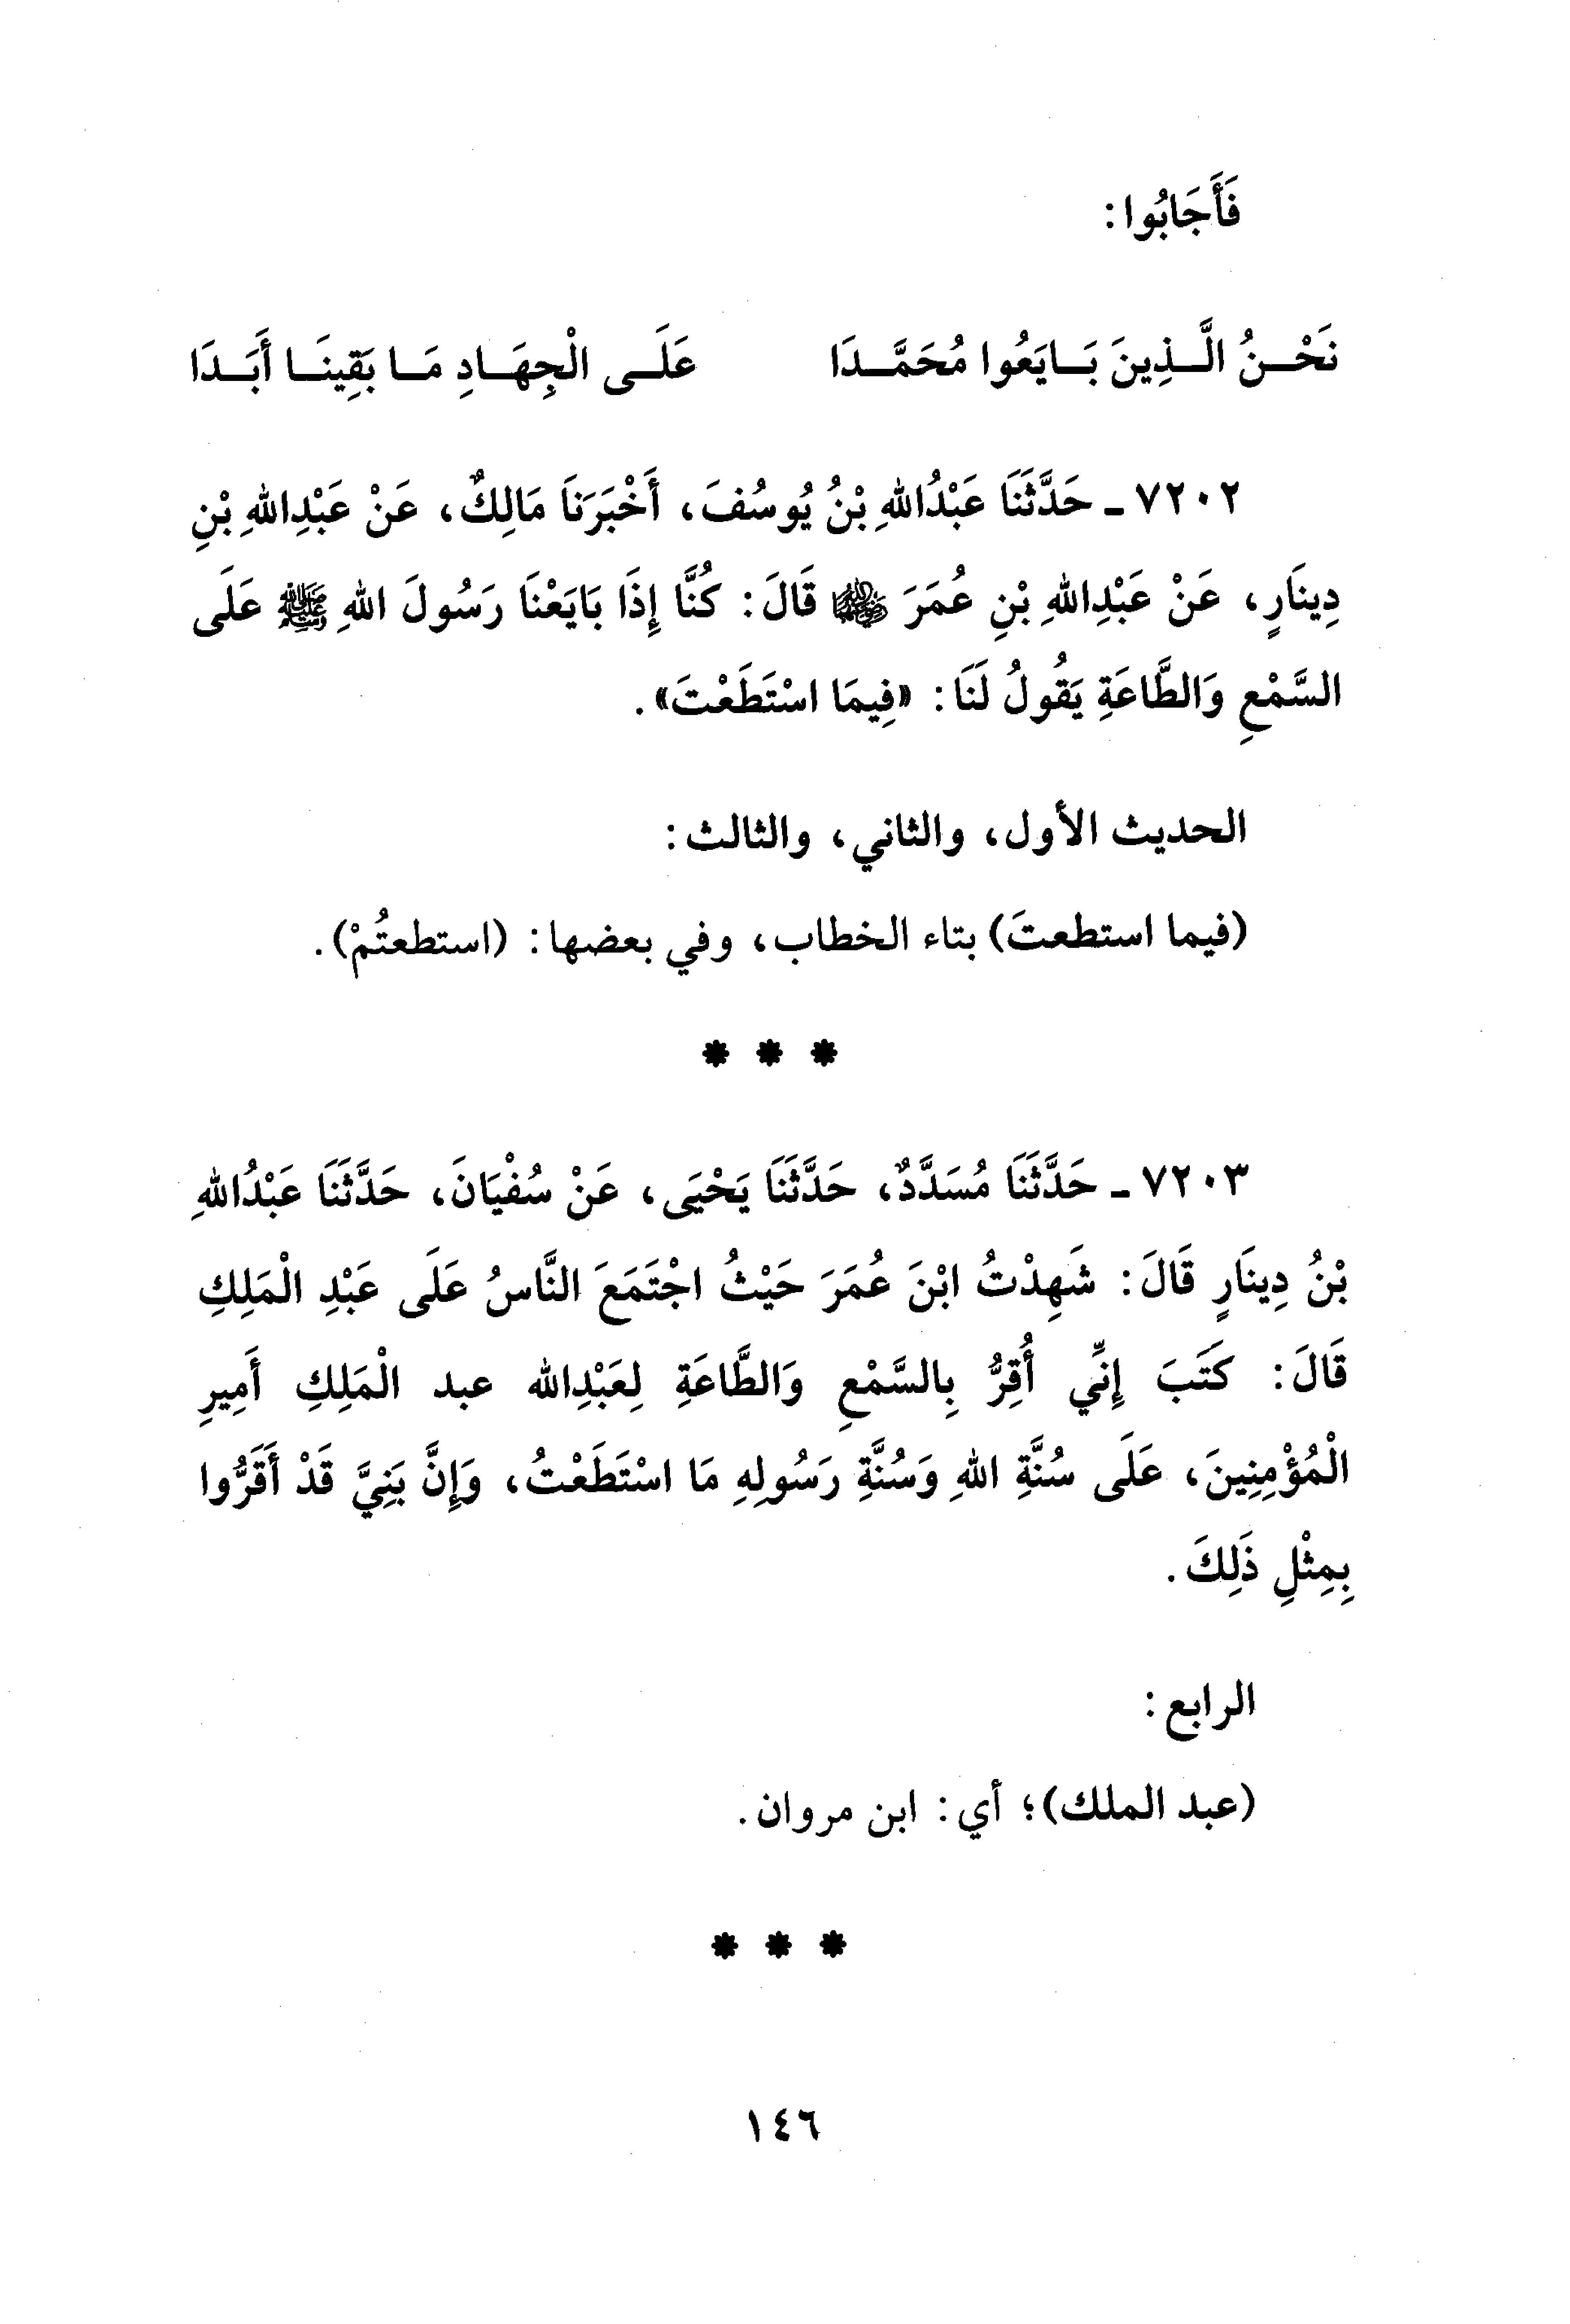 فَأَجَابُوا:
نَحْـنُ الَّـذِينَ بَـايَعُوا مُحَمَّـدَا عَلَـى الْجِهَـادِ مَـا بَقِينَـا أَبَـدَا
٧٢٠٢ ـ حَدَّثَنَا عَبْدُاللهِ بْنُ يُوسُفَ، أَخْبَرَنَا مَالِكٌ، عَنْ عَبْدِاللهِ بْنِ
دِينَارٍ، عَنْ عَبْدِاللهِ بْنِ عُمَرَ ﵄ قَالَ: كُنَّا إِذَا بَايَعْنَا رَسُولَ اللهِ ﷺ عَلَى
السَّمْعِ وَالطَّاعَةِ يَقُولُ لَنَا: «فِيمَا اسْتَطَعْتَ».
الحديث الأول، والثاني، والثالث:
(فيما استطعتَ) بتاء الخطاب، وفي بعضها: (استطعتُمْ).
* * *
٧٢٠٣ ـ حَدَّثَنَا مُسَدَّدٌ، حَدَّثَنَا يَحْيَى، عَنْ سُفْيَانَ، حَدَّثَنَا عَبْدُاللهِ
بْنُ دِينَارٍ قَالَ: شَهِدْتُ ابْنَ عُمَرَ حَيْثُ اجْتَمَعَ النَّاسُ عَلَى عَبْدِ الْمَلِكِ
قَالَ: كَتَبَ إِنِّي أُقِرُّ بِالسَّمْعِ وَالطَّاعَةِ لِعَبْدِالله عبد الْمَلِكِ أَمِيرِ
الْمُؤْمِنِينَ، عَلَى سُنَّةِ اللهِ وَسُنَّةِ رَسُولِهِ مَا اسْتَطَعْتُ، وَإِنَّ بَنِيَّ قَدْ أَقَرُّوا
بِمِثْلِ ذَلِكَ.
الرابع:
(عبد الملك)؛ أي: ابن مروان.
* * *
١٤٦